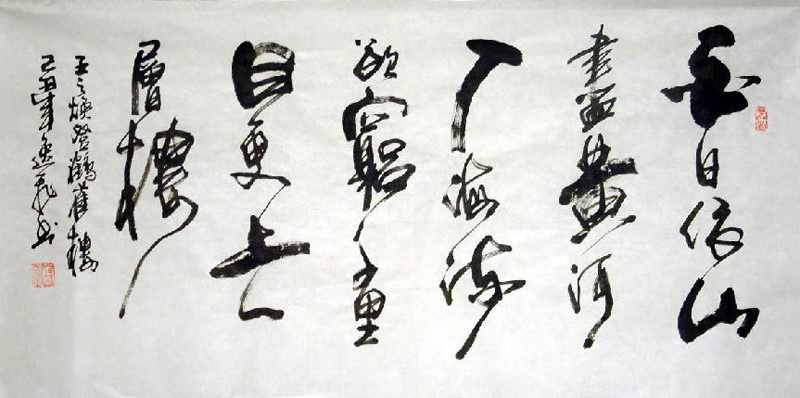 白日依山
盡黃河
入海流
欲窮千里
目更上一
層樓
王之煥登鸛雀樓
己丑年